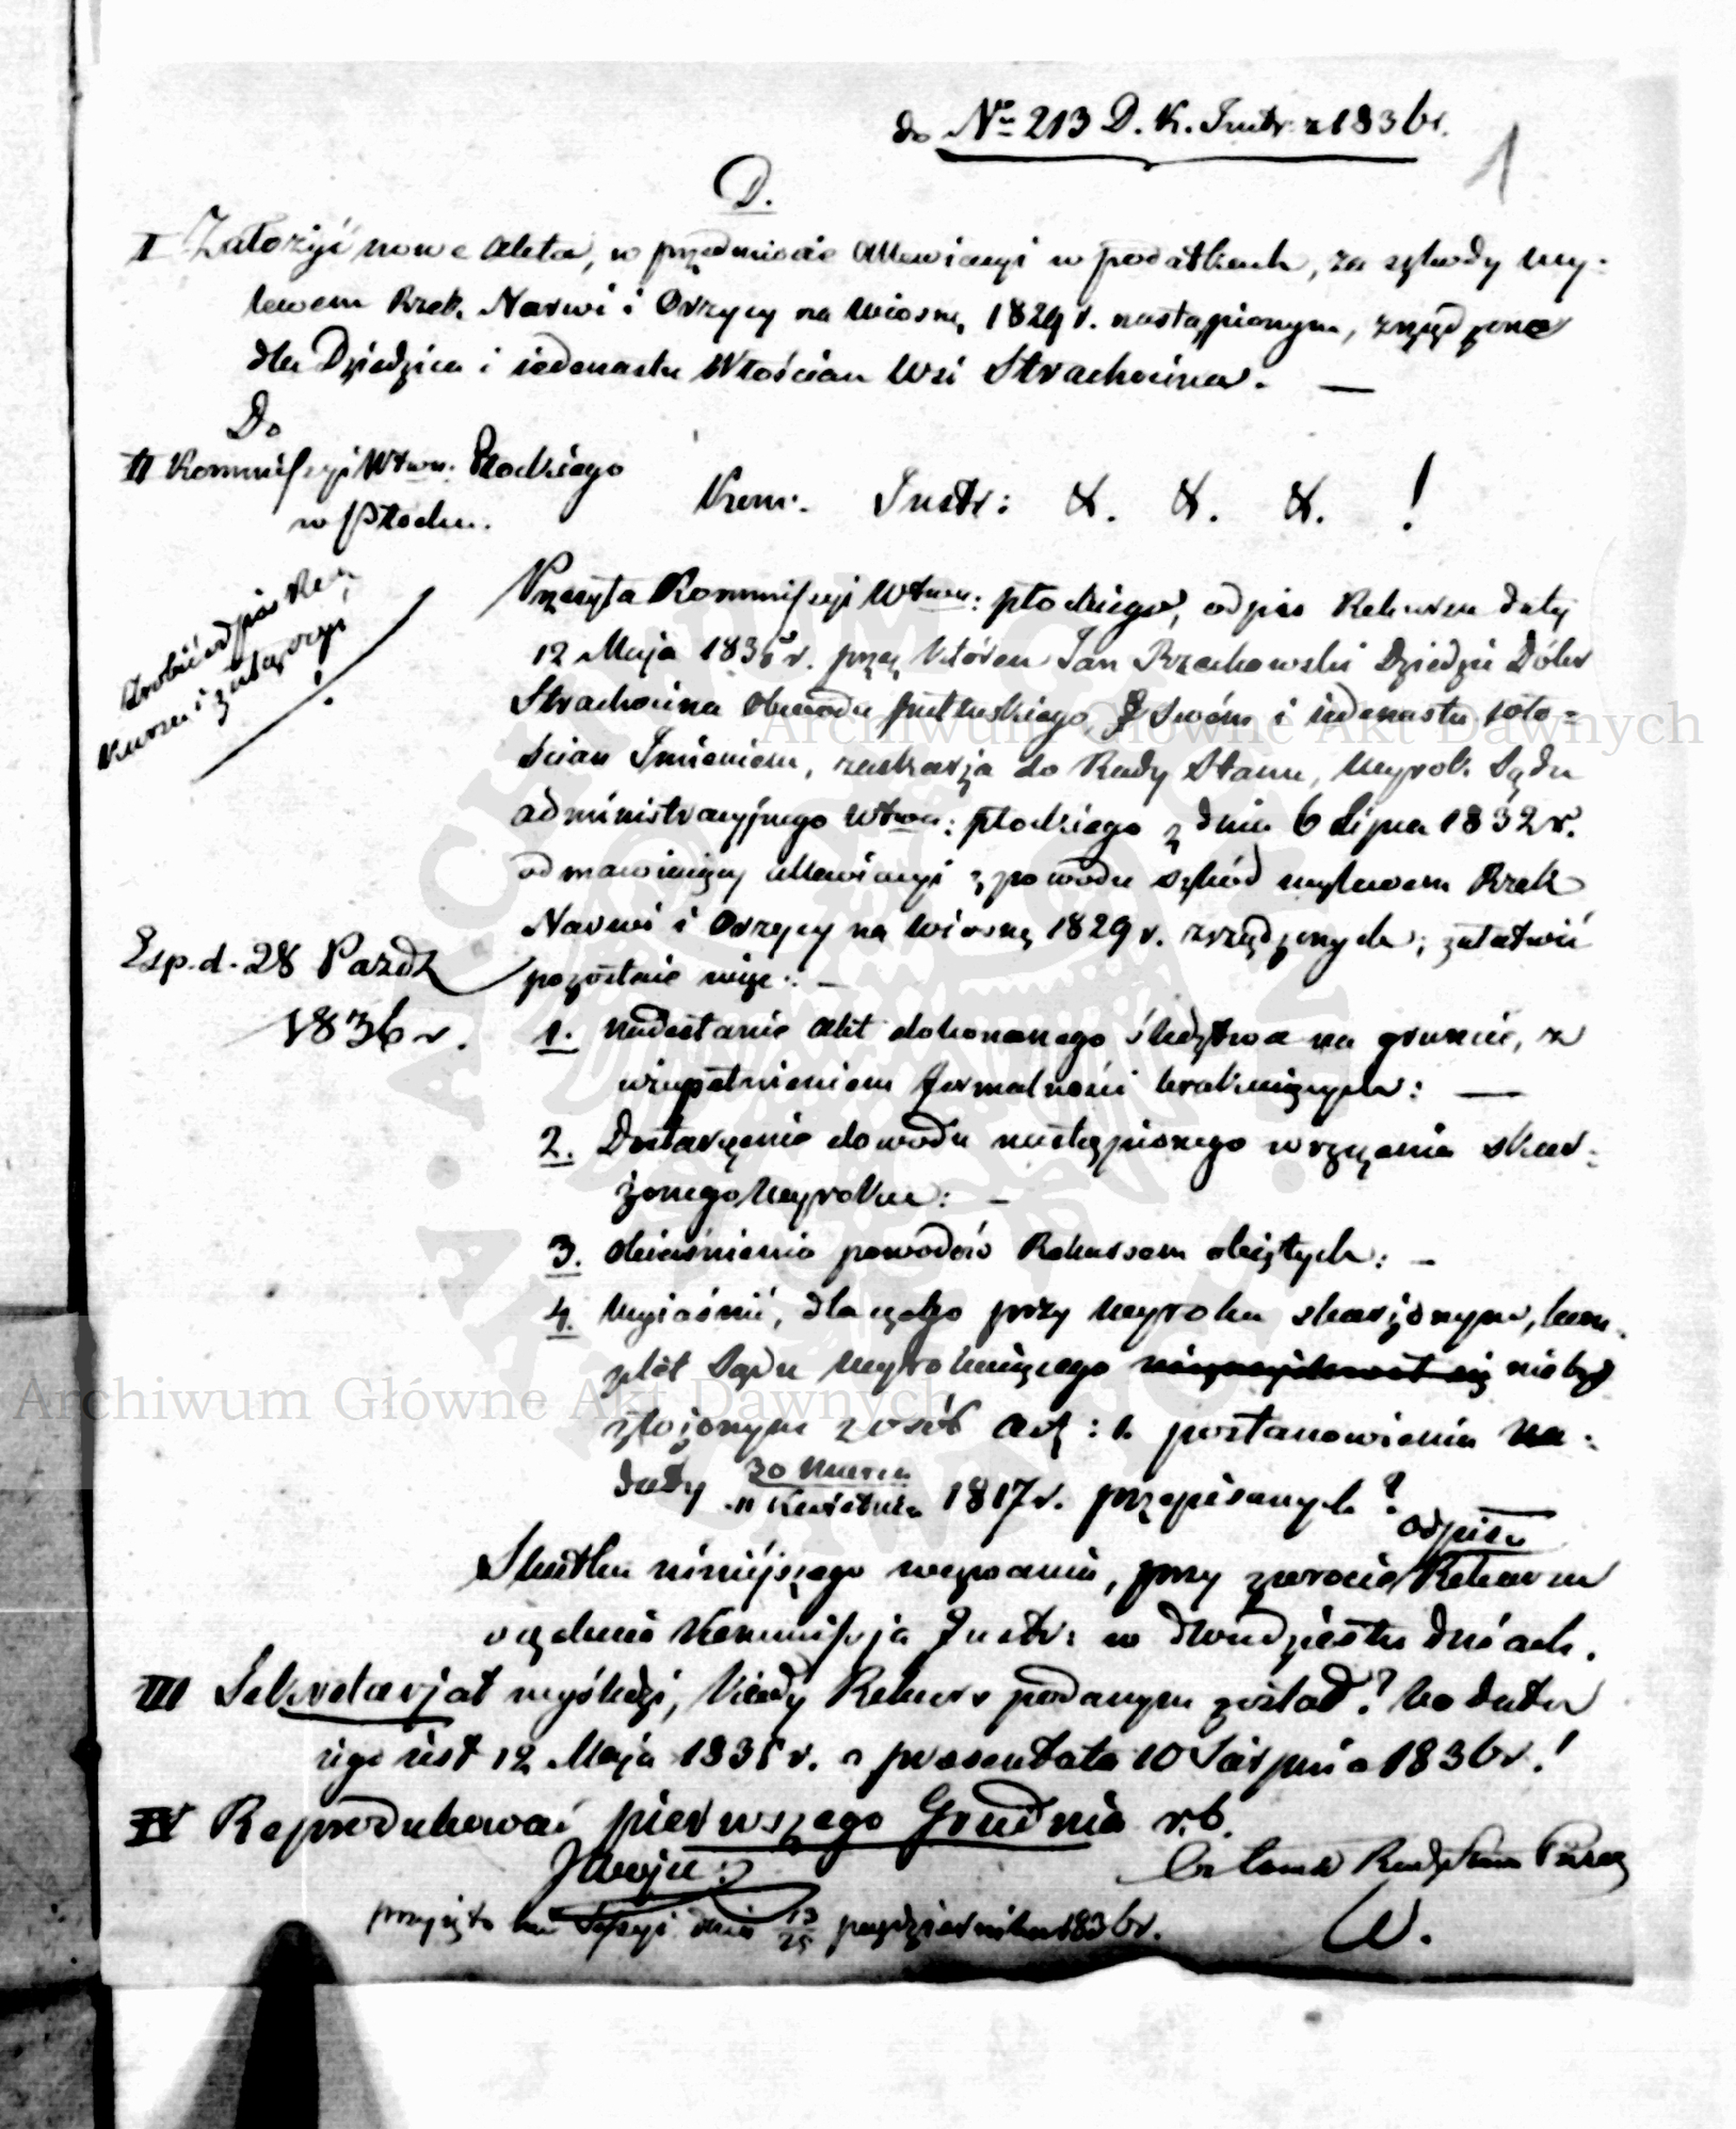 do No 213 D. K. Instr. z 1836 r.
1
D.
I Założyć nowe Akta, w przedmiocie Allewiacyi w podatkach, za szkody wy-
lewem Rzek Narwi i Orzycy na wiosnę 1829 r. nastąpionym, zrządzone
dla Dziedzica i iedenastu Włościan Wsi Strachocina. —
Do
II Kommissyi Wtwa. Płockiego
w Płocku.
Kom. Instr: &. &. &. !
Zrobić odpis Re-
kursu i załączyć
!
Przesyła Kommissyi Wtwa: płockiego, odpis Rekursu daty
12 Maja 1835 r. przez który Jan Rzechowski Dziedzic Dóbr
Strachocina Obwodu pułtuskiego, Swóim i iedenastu Wło-
ścian Imieniem, zaskarża do Rady Stanu, wyrok Sądu
administracyjnego Wtwa: płockiego z dnia 6 Lipca 1832 r.
odmawiaiący Allewiacyi z powodu szkód wylewem Rzek
Narwi i Orzycy na wiosnę 1829 r. zrządzonych; załatwić
pozostaie więc: —
Exp. d. 28 Pazdz
1836 r.
1. nadesłanie Akt dokonanego śledztwa na gruncie, z
uzupełnieniem formalności brakuiących: —
2. Dostarczenie dowodu nastąpionego wręczenia skar-
żonego wyroku: —
3. Obiaśnienie powodów Rekursem obiętych: —
4. Wyiaśnić, dla czego przy wyroku skarżonym, kom-
plet Sądu wyrokuiącego nie był
złożonym z osób art: 1. postanowienia
daty 30 Marca
11 Kwietnia 1817 r. przepisanych?
odpisu
Skutku niniejszego wezwania, przy zwrocie Rekursu
oczekuie Kommissyja Instr: w dwudziestu dniach.
III Sekretarjat wyśledzi, kiedy Rekurs podanym został? bo data
iego iest 12 Maja 1835 r. a prezentata 10 Sierpnia 1836 r.!
IV Reprodukować pierwszego Grudnia r.b.
przyjęto na Sessyi dnia 13/25 października 1836 r.
W.